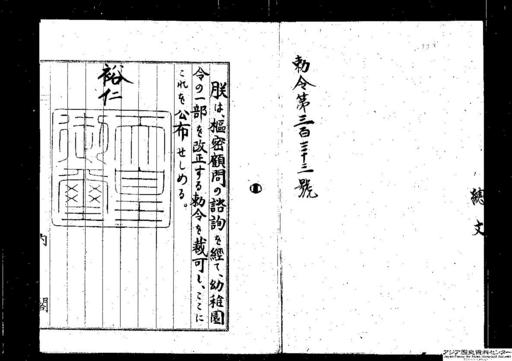 總文
勅令第三百三十三號
朕は、樞密顧問の諮詢を經て、幼稚園
令の一部を改正する勅令を裁可し、ここに
これを公布せしめる。
裕仁
天皇
御璽
内閣
アジア歴史資料センター